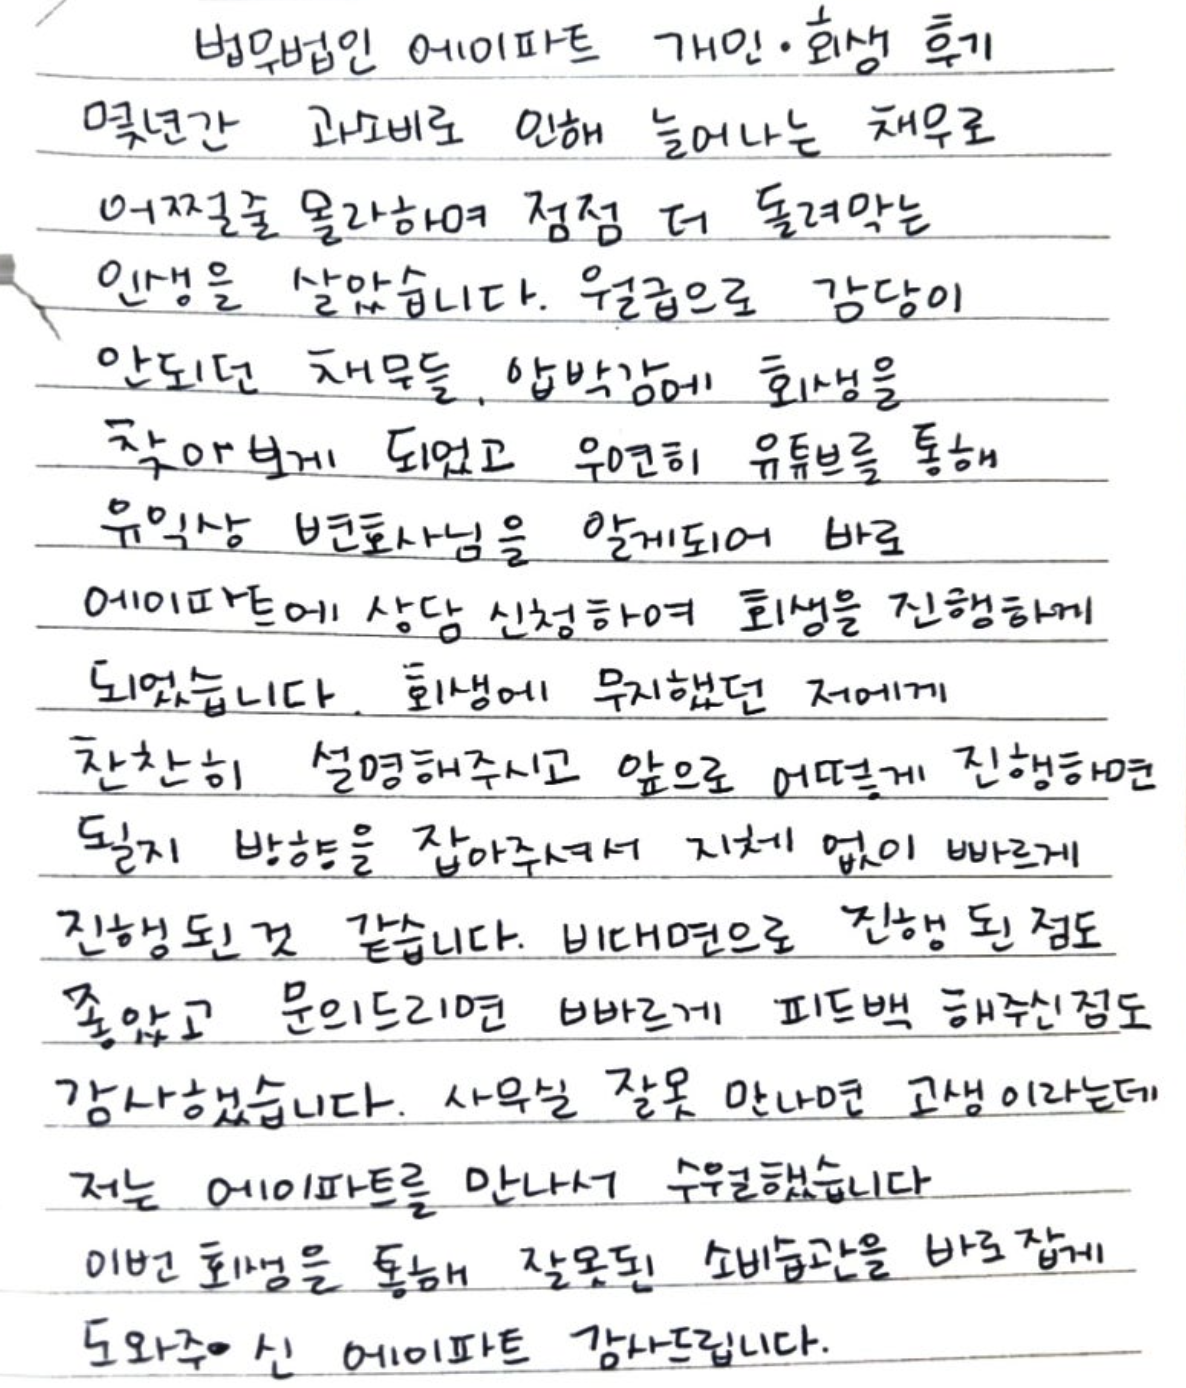 법무법인 에이파트 개인·회생 후기
몇년간 과소비로 인해 늘어나는 채무로
어쩔줄 몰라하여 점점 더 돌려막는
인생을 살았습니다. 월급으로 감당이
안되던 채무들, 압박감에 회생을
찾아보게 되었고 우연히 유튜브를 통해
유익상 변호사님을 알게되어 바로
에이파트에 상담 신청하여 회생을 진행하게
되었습니다. 회생에 무지했던 저에게
찬찬히 설명해주시고 앞으로 어떻게 진행하면
될지 방향을 잡아주셔서 지체 없이 빠르게
진행된것 같습니다. 비대면으로 진행된점도
좋았고 문의드리면 빠르게 피드백 해주신점도
감사했습니다. 사무실 잘못 만나면 고생이라는데
저는 에이파트를 만나서 수월했습니다
이번 회생을 통해 잘못된 소비습관을 바로잡게
도와주신 에이파트 감사드립니다.